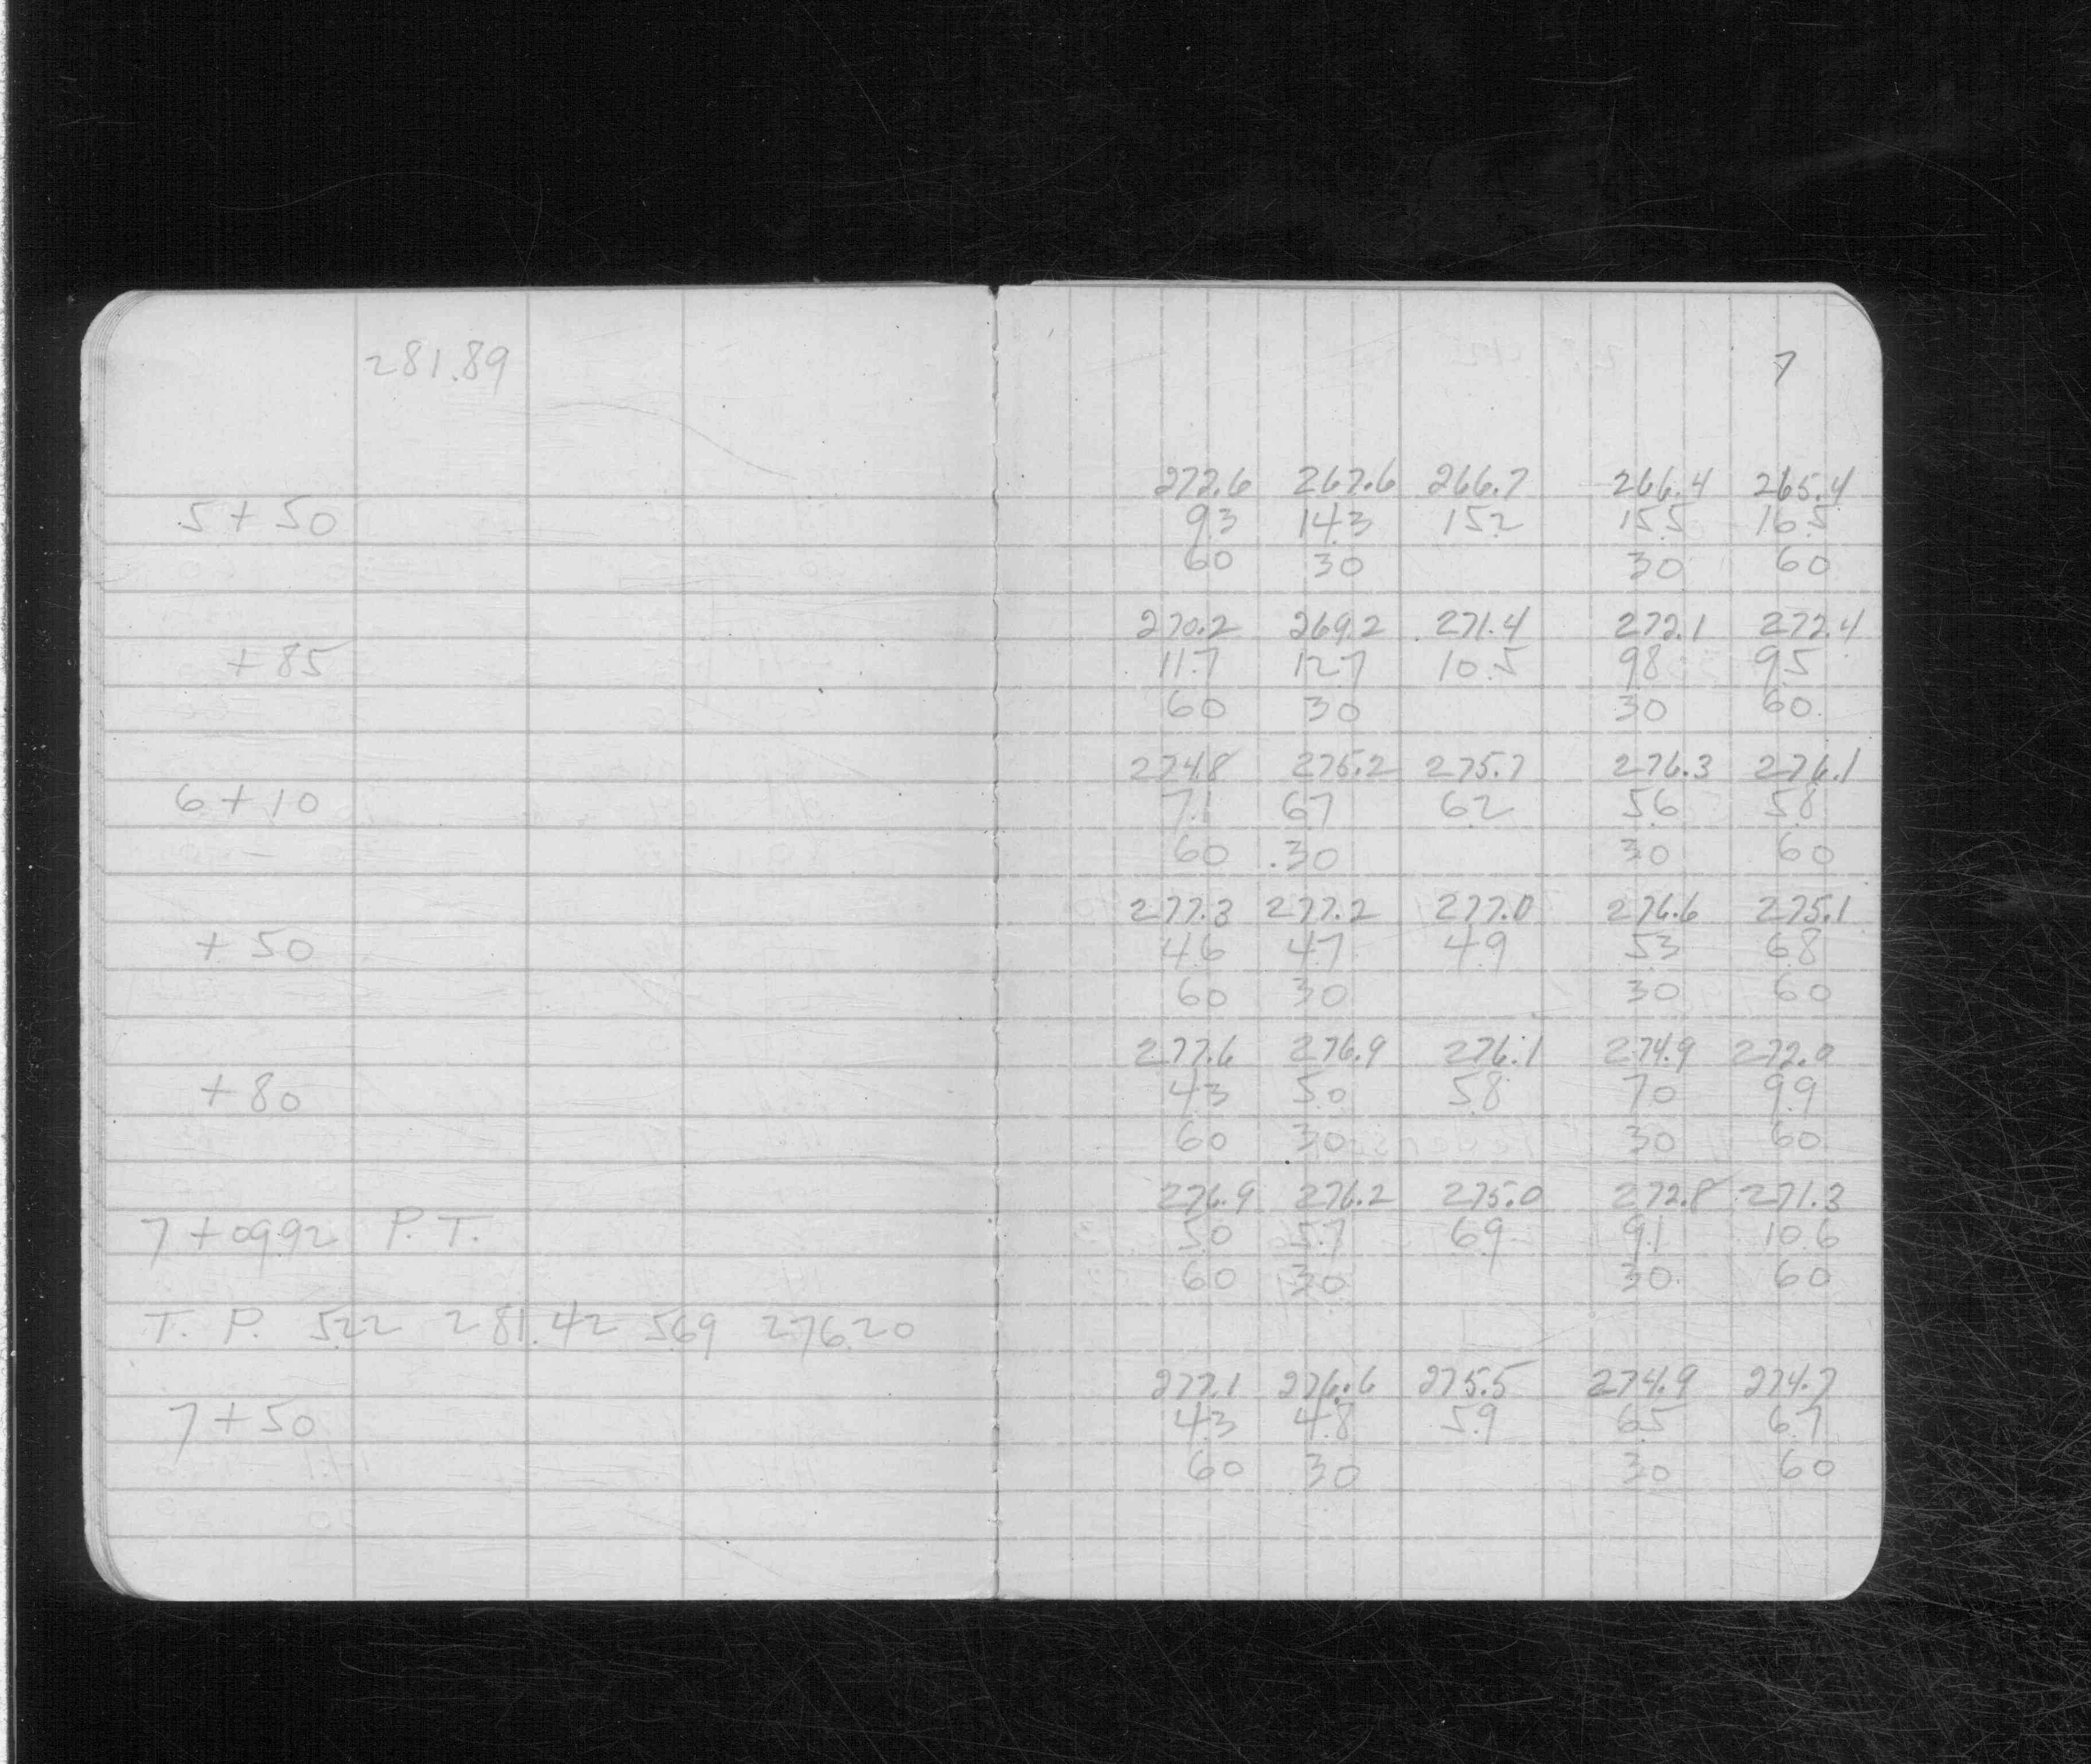 281.89
7
272.6 267.6 266.7 266.4 265.4
5+50 9.3 14.3 15.2 15.5 16.5
60 30 30 60
270.2 269.2 271.4 272.1 272.4
+85 11.7 12.7 10.5 9.8 9.5
60 30 30 60
274.8 275.2 275.7 276.3 276.1
6+10 7.1 6.7 6.2 5.6 5.8
60 30 30 60
277.3 277.2 277.0 276.6 275.1
+50 4.6 4.7 4.9 5.3 6.8
60 30 30 60
277.6 276.9 276.1 274.9 272.0
+80 4.3 5.0 5.8 7.0 9.9
60 30 30 60
276.9 276.2 275.0 272.8 271.3
7+09.92 P.T. 5.0 5.7 6.9 9.1 10.6
60 30 30 60
T. P. 5.22 281.42 5.69 276.20
277.1 276.6 275.5 274.9 274.7
7+50 4.3 4.8 5.9 6.5 6.7
60 30 30 60